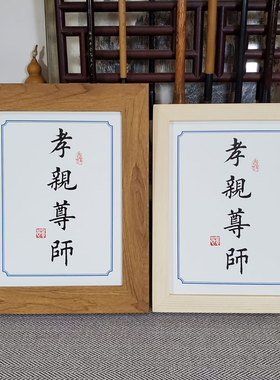 孝親尊師
孝親尊師